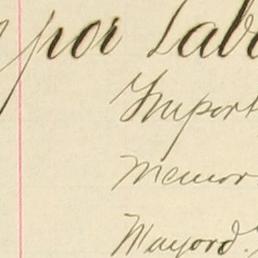 por Lab
Import
Memor
Mayord.